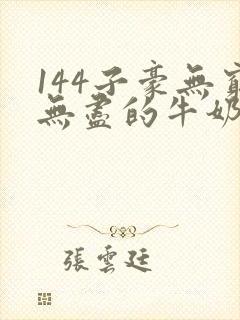 144子豪無窮
無盡的牛奶
張雲廷